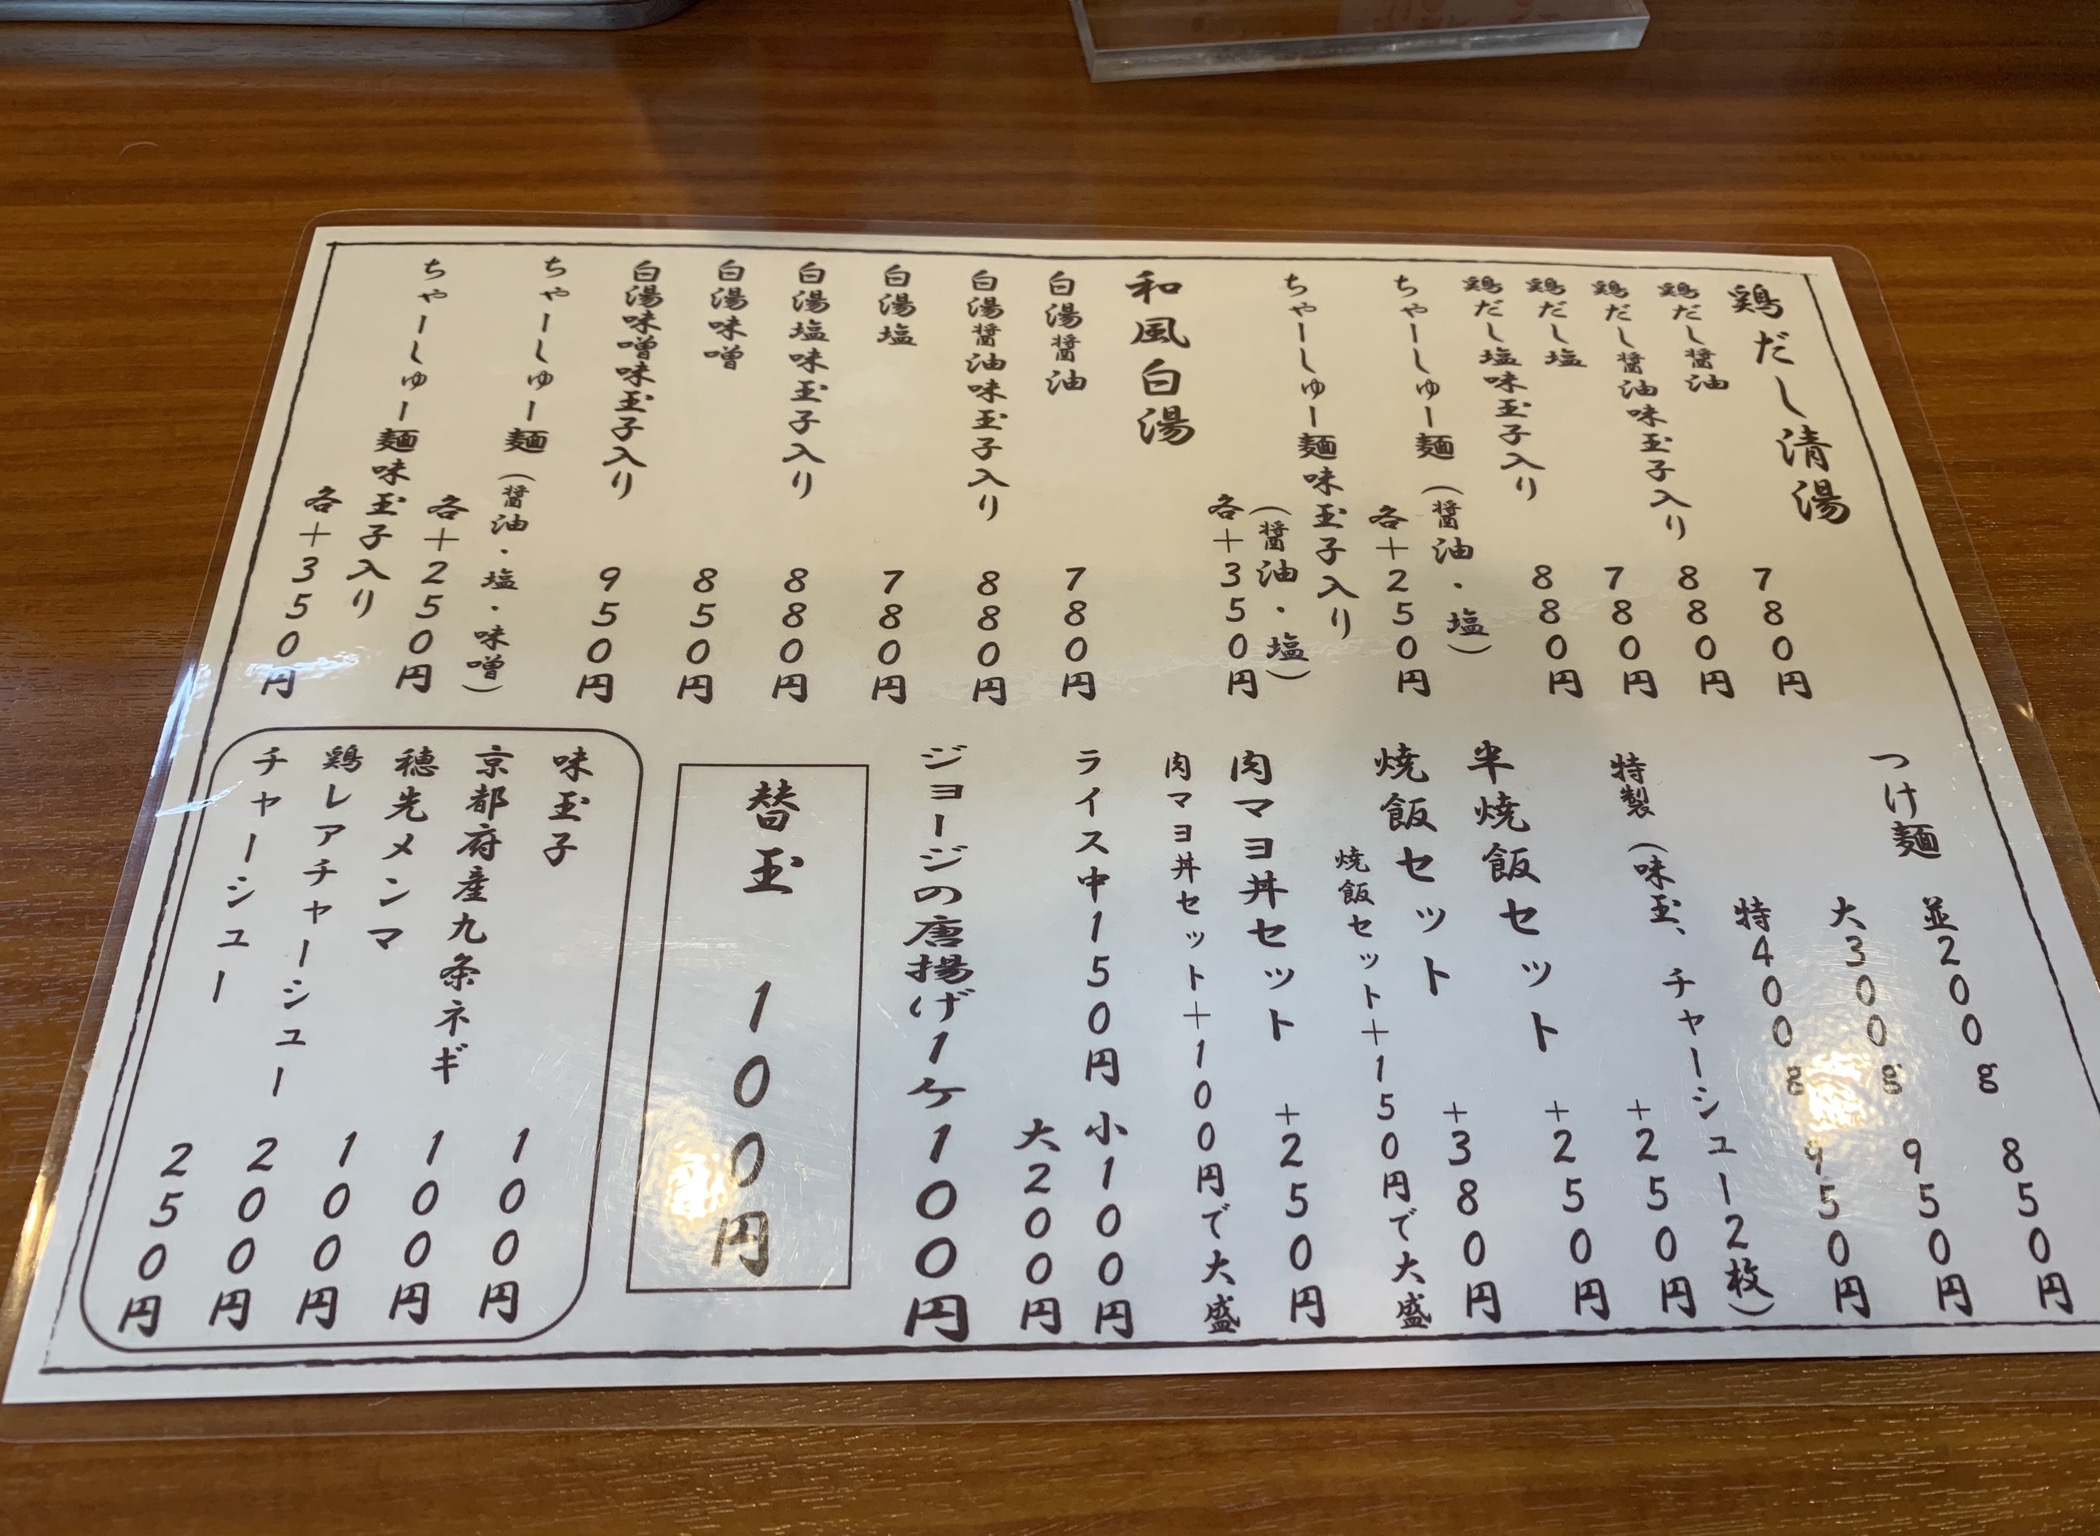 鶏だし清湯
鶏だし醤油 780円
鶏だし醤油味玉子入り 880円
鶏だし塩 780円
鶏だし塩味玉子入り 880円
ちゃーしゅー麺(醤油・塩)
各+250円
ちゃーしゅー麺味玉子入り
(醤油・塩)
各+350円
和風白湯
白湯醤油 780円
白湯醤油味玉子入り 880円
白湯塩 780円
白湯塩味玉子入り 880円
白湯味噌 850円
白湯味噌味玉子入り 950円
ちゃーしゅー麺(醤油・塩・味噌)
各+250円
ちゃーしゅー麺味玉子入り
各+350円
つけ麺
並200g 850円
大300g 950円
特400g 950円
特製(味玉、チャーシュー2枚)
+250円
半焼飯セット +250円
焼飯セット +380円
焼飯セット+150円で大盛
肉マヨ丼セット +250円
肉マヨ丼セット+100円で大盛
ライス中150円 小100円
大200円
ジョージの唐揚げ1ヶ100円
替玉 100円
味玉子 100円
京都府産九条ネギ 100円
穂先メンマ 100円
鶏レアチャーシュー 200円
チャーシュー 250円